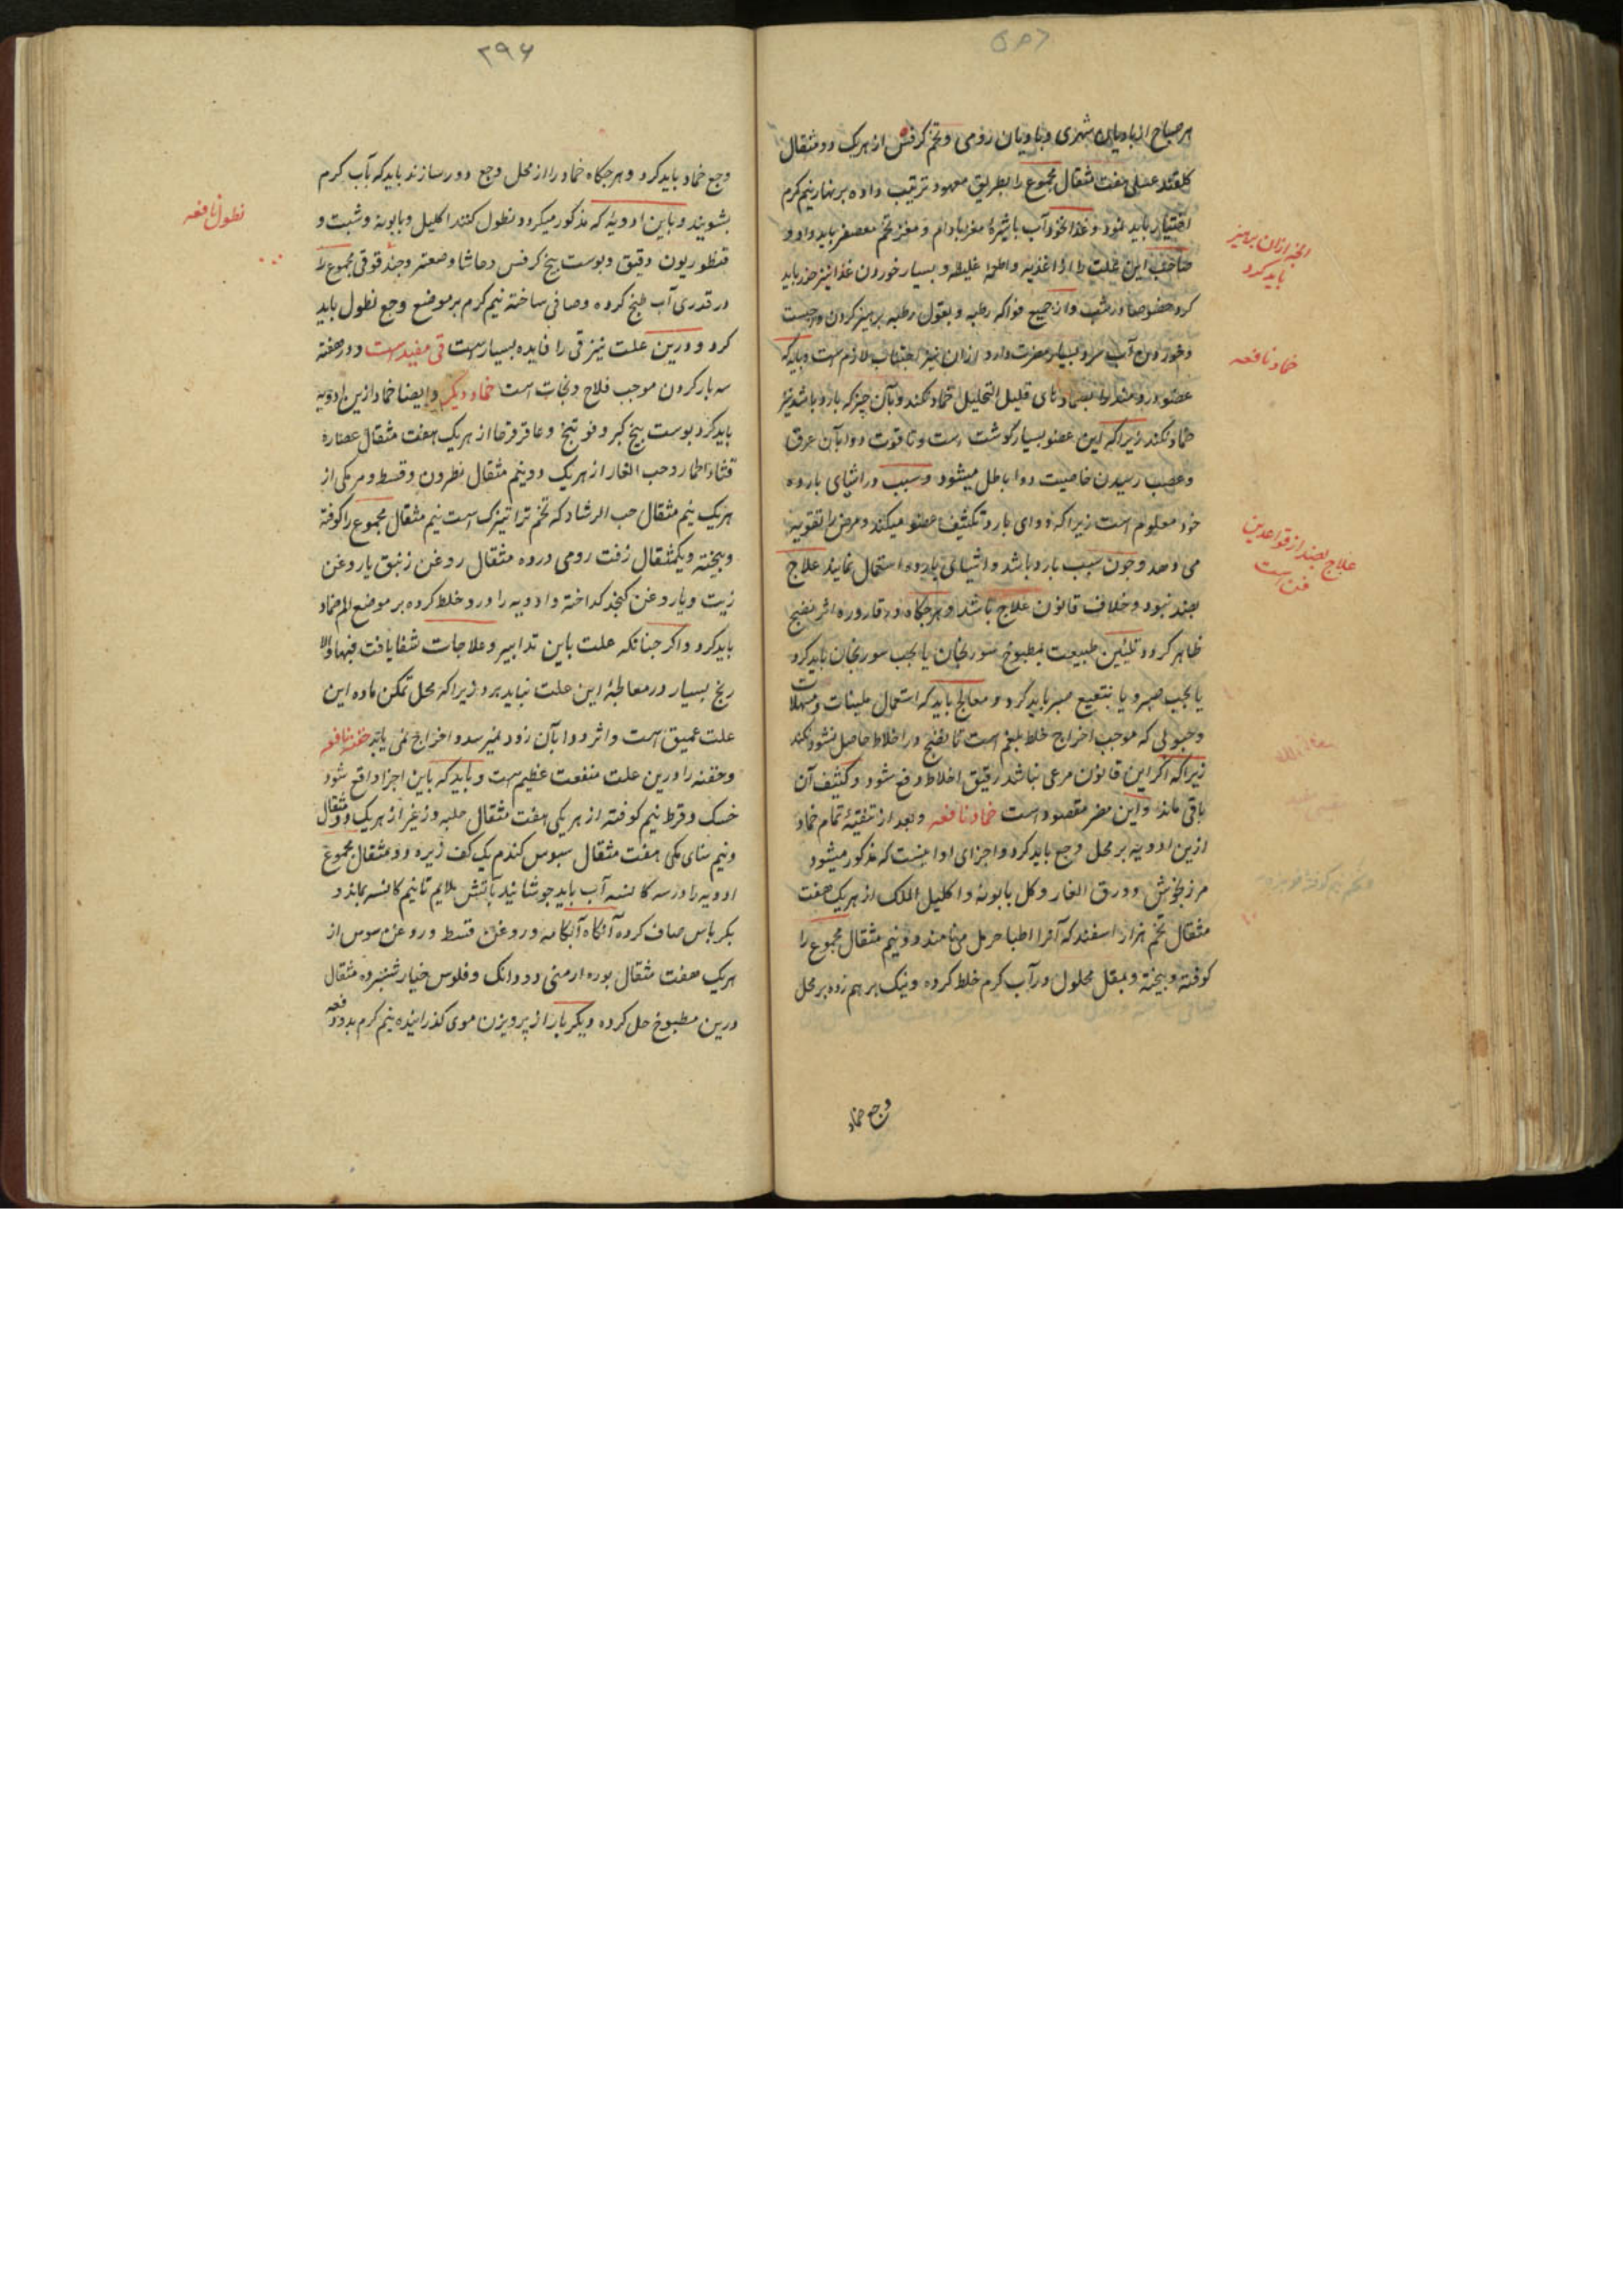 هر صباح از بادیان شهری و بادیان رومی و تخم کرفس از هریک دو مثقال
کلقند عسلی هفت مثقال مجموع را بطریق معهود ترتیب داده بر نهار نیم کرم
اختیار باید نمود و غذا نخود آب با شیره مغز بادام و مغز تخم معصفر باید داد و
صاحب این علت را از اغذیه و اطعمه غلیظه و بسیار خوردن غذا نیز حذر باید
کرد خصوصا در شب و از جمیع فواکه رطبه و بقول رطبه پرهیز کردن واجبست
و خوردن آب سرد بسیار مضرت دارد ازان نیز اجتناب لازم است و باید که
عضو دردمند را بضمادهای قلیل التحلیل ضماد نکند و بآن چیز که بارد باشد نیز
ضماد نکند زیرا که این عضو بسیار کوشت است و تا قوت دوا بآن عرق
و عصب رسیدن خاصیت دوا باطل میشود و سبب در اشیای بارده
خود معلوم است زیرا که دوای بارد تکثیف عضو میکند و مرض را تقویة
می دهد و چون سبب بارد باشد و اشیائی بارده استعمال نمایند علاج
بضد نبود و خلاف قانون علاج باشد و هرجکاه در قاروره اثر نضج
ظاهر کردد تلئین طبیعت بمطبوخ سورنجان یا بحب سورنجان باید کرد
یا بحب صبر و یا بنقیع صبر باید کرد و معالج باید که استعمال ملینات و مسهلات
و حبوبی که موجب اخراج خلط بلغم است تا نضج در اخلاط حاصل نشود نکند
زیرا که اگر این قانون مرعی نباشد رقیق اخلاط دفع شود و کثیف آن
باقی ماند و این مضر مقصود است ضماد نافعه و بعد از تنقیهٔ تمام ضماد
ازین ادویه بر محل وجع باید کرد و اجزای او اینست که مذکور میشود
مرزنجوش و ورق الغار و کل بابونه و اکلیل الملک از هریک هفت
مثقال تخم هزار اسفند که آنرا اطبا حرمل می نامند دو نیم مثقال مجموع را
کوفته و بیخته و بمقل محلول در آب کرم خلط کرده و نیک بر هم زده بر محل
وجع ضماد
انجه ازان پرهیز
باید کرد
ضماد نافعه
علاج بضد از قواعد این
فن است
۲۹۶
وجع ضماد باید کرد و هرجکاه ضماد را از محل وجع دور سازند باید که بآب کرم
بشویند و باین ادویه که مذکور میکردد نطول کنند اکلیل و بابونه و شبت و
قنطوریون دقیق و پوست بیخ کرفس و حاشا و صعتر و جندقوقی مجموع را
در قدری آب طبخ کرده و صافی ساخته نیم کرم بر موضع وجع نطول باید
کرد و درین علت نیز قی را فایده بسیار است قی مفید است و در هفته
سه بار کردن موجب فلاح و نجات است ضماد دیگر و ایضا ضماد ازین ادویه
باید کرد پوست بیخ کبر و فوتنج و عاقرقرحا از هریک هفت مثقال عصاره
قثاء الحمار و حب الغار از هریک دو نیم مثقال نطرون و قسط و مر مکی از
هریک نیم مثقال حب الرشاد که تخم تراتیزک است نیم مثقال مجموع را کوفته
و بیخته و یکمثقال زفت رومی در ده مثقال روغن زنبق یا روغن
زیت و یا روغن کنجد کداخته و ادویه را درو خلط کرده بر موضع الم ضماد
باید کرد و اکر جنانکه علت باین تدابیر و علاجات شفا یافت فبها و الا
رنج بسیار در معالجهٔ این علت نباید برد زیرا که محل تمکن ماده این
علت عمیق است و اثر دوا بآن زود نمیرسد و اخراج نمی یابد حقنه نافعه
و حقنه را درین علت منفعت عظیم است و باید که باین اجزا واقع شود
خسک و قرط نیم کوفته از هر یکی هفت مثقال حلبه و زغیر از هریک دو مثقال
و نیم سنای مکی هفت مثقال سبوس کندم یک کف زیره دو مثقال مجموع
ادویه را در سه کاسه آب باید جوشانید بآتش ملایم تا نیم کاسه بماند و
بکرباس صاف کرده آنکاه آبکامه و روغن قسط و روغن سوس از
هریک هفت مثقال بوره ارمنی دو دانک و فلوس خیار شنبر ده مثقال
درین مطبوخ حل کرده و یکبار از پرویزن موی کذرانیده نیم کرم بدو دفعه
نطول نافعه